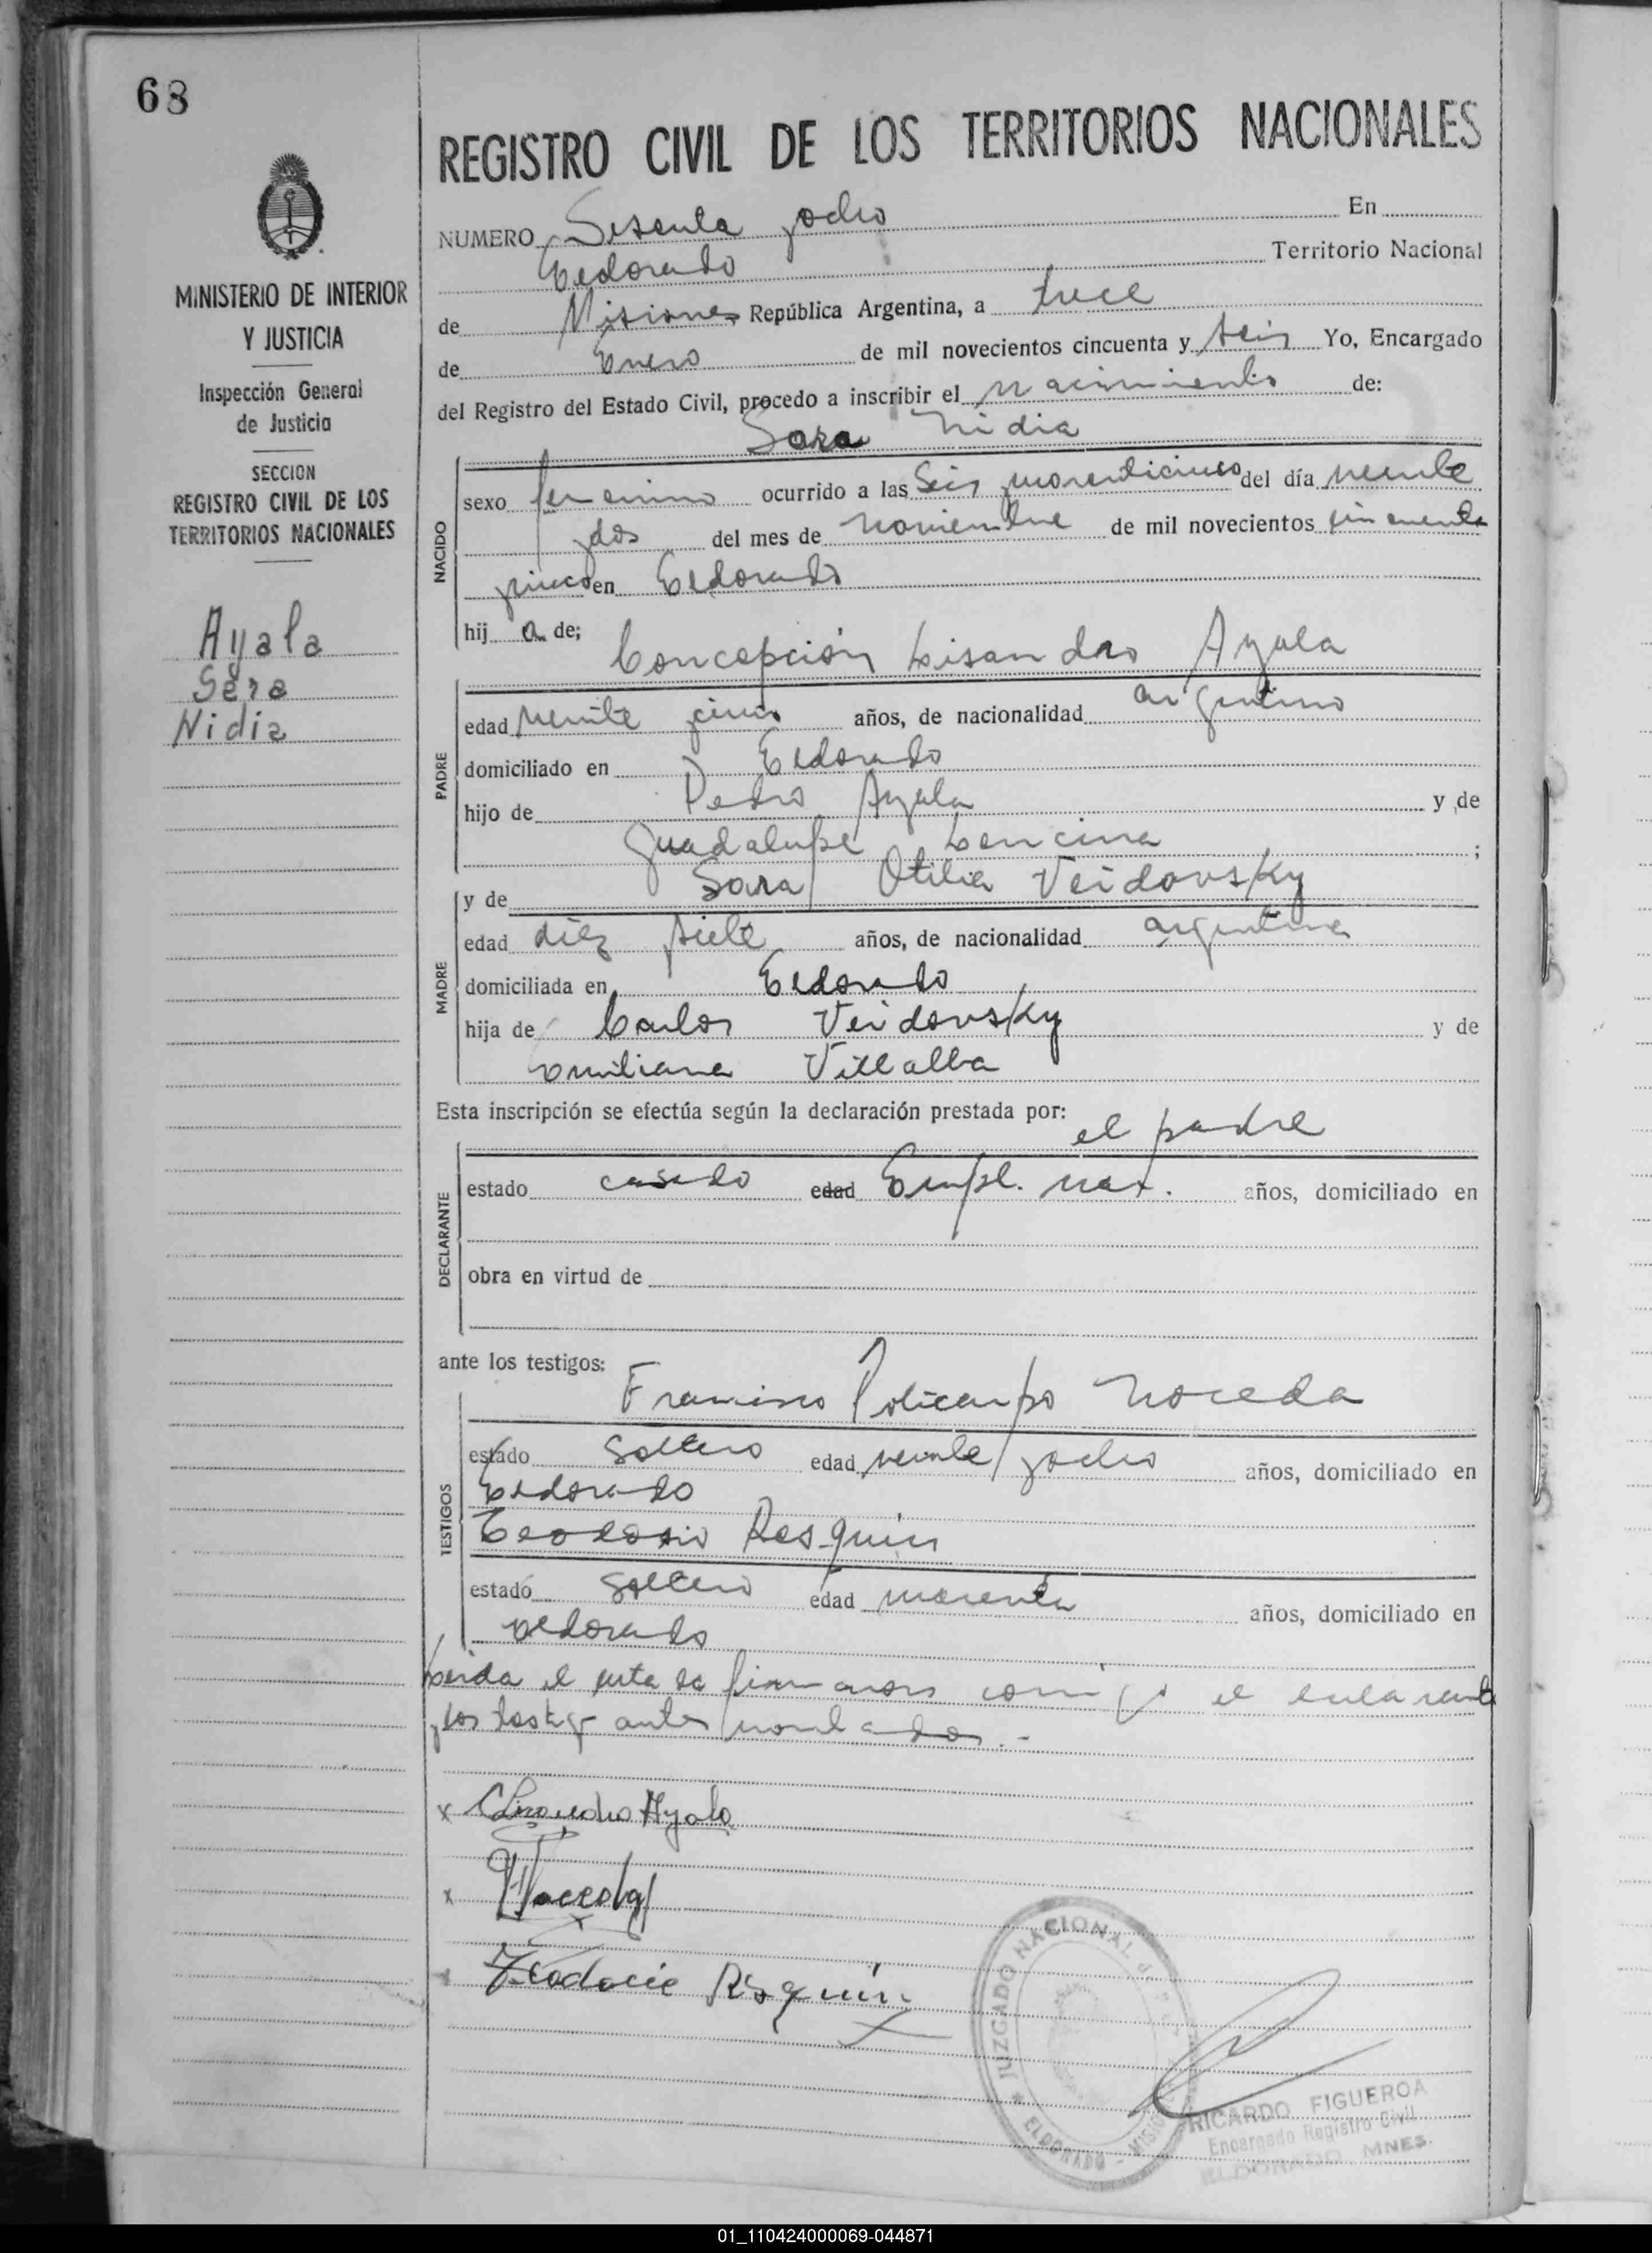 68
MINISTERIO DE INTERIOR
Y JUSTICIA
Inspección General
de Justicia
SECCION
REGISTRO CIVIL DE LOS
TERRITORIOS NACIONALES
Ayala
Sara
Nidia
REGISTRO CIVIL DE LOS TERRITORIOS NACIONALES
NUMERO Sesenta y ocho En
Eldorado Territorio Nacional
de Misiones República Argentina, a trece
de Enero de mil novecientos cincuenta y seis Yo, Encargado
del Registro del Estado Civil, procedo a inscribir el nacimiento de:
Sara Nidia
NACIDO
sexo femenino ocurrido a las Seis y cuarenticinco del día veinte
y dos del mes de noviembre de mil novecientos cincuenta
y cinco en Eldorado
hij a de;
Concepción Lisandro Ayala
PADRE
edad veinte y cinco años, de nacionalidad argentino
domiciliado en Eldorado
hijo de Pedro Ayala y de
Guadalupe Lencina ;
y de Sara Otilia Veidovsky
MADRE
edad diez y siete años, de nacionalidad argentina
domiciliada en Eldorado
hija de Carlos Veidovsky y de
Emiliana Villalba
Esta inscripción se efectúa según la declaración prestada por:
el padre
DECLARANTE
estado casado edad Empl. nac. años, domiciliado en
obra en virtud de
ante los testigos:
Francisco Policarpo Noceda
TESTIGOS
estado soltero edad veinte y ocho años, domiciliado en
Eldorado
Teodosio Resquin
estado soltero edad cuarenta años, domiciliado en
Eldorado
Leida el acta la firmaron conmigo el declarante
y los testigos antes nombrados.-
x CLisandro Ayala
x Noceda
x Teodocio Resquin
JUZGADO NACIONAL DE PAZ
ELDORADO - MISIONES
RICARDO FIGUEROA
Encargado Registro Civil
ELDORADO MNES.
01_110424000069-044871